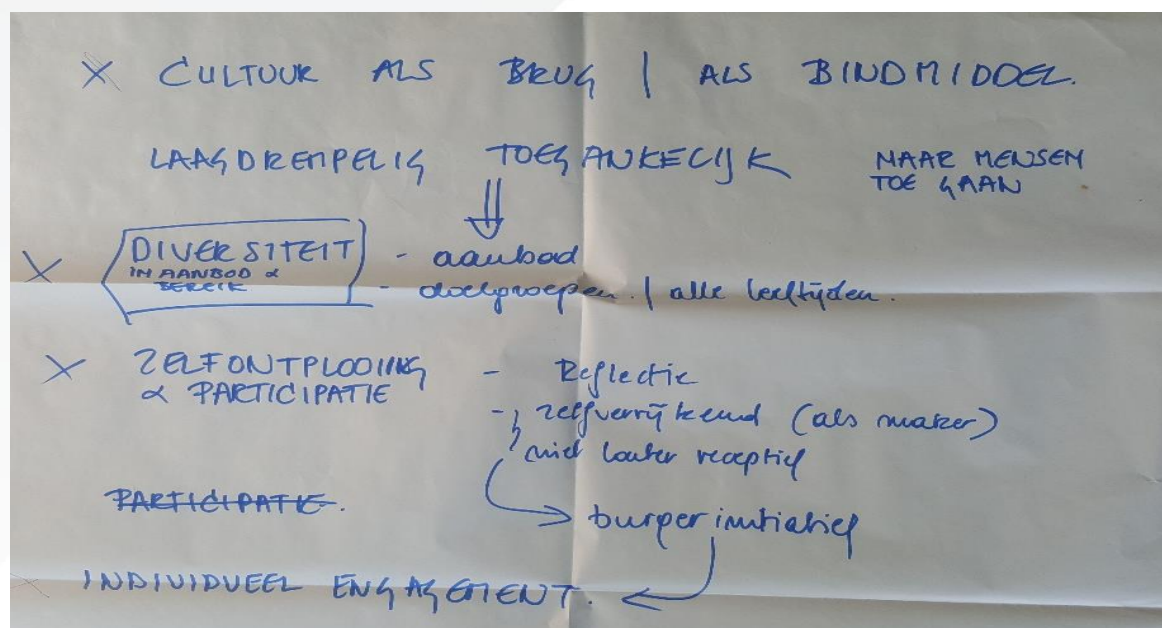 X CULTUUR ALS BRUG | ALS BINDMIDDEL.
LAAGDREMPELIG TOEGANKELIJK NAAR MENSEN
TOE GAAN
X DIVERSITEIT - aanbod
IN AANBOD & BEREIK - doelgroepen. | alle leeftijden.
X ZELFONTPLOOIING - Reflectie
& PARTICIPATIE - zelfverrijkend (als maker)
niet louter receptief
PARTICIPATIE.
burgerinitiatief
X INDIVIDUEEL ENGAGEMENT.